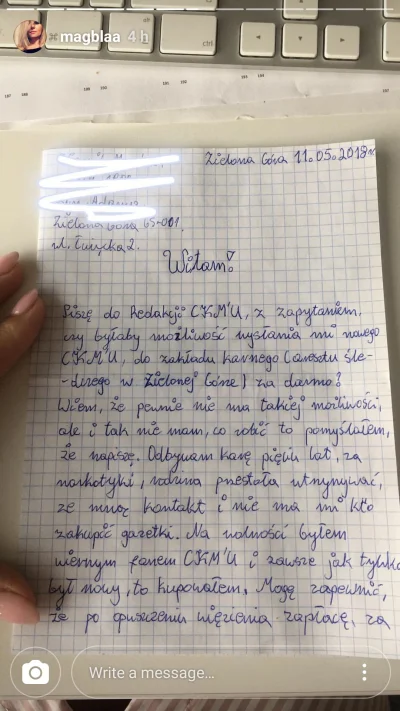 magblaa 4 h
ctrl
Zielona Góra 11.05.2018r
Zielona Góra 65-001
ul. Łużycka 2.
Witam!
Piszę do Redakcji CKM'U, z zapytaniem,
czy byłaby możliwość wysłania mi nowego
CKM'U, do zakładu karnego (aresztu śle-
-dczego w Zielonej Górze) za darmo?
Wiem, że pewnie nie ma takiej możliwości,
ale i tak nie mam, co robić to pomyślałem,
że napiszę. Odbywam karę pięciu lat, za
narkotyki, rodzina przestała utrzymywać,
ze mną kontakt i nie ma mi kto
zakupić gazetki. Na wolności byłem
wiernym fanem CKM'U i zawsze jak tylko
był nowy, to kupowałem. Mogę zapewnić,
że po opuszczeniu więzienia zapłacę, za
Write a message...